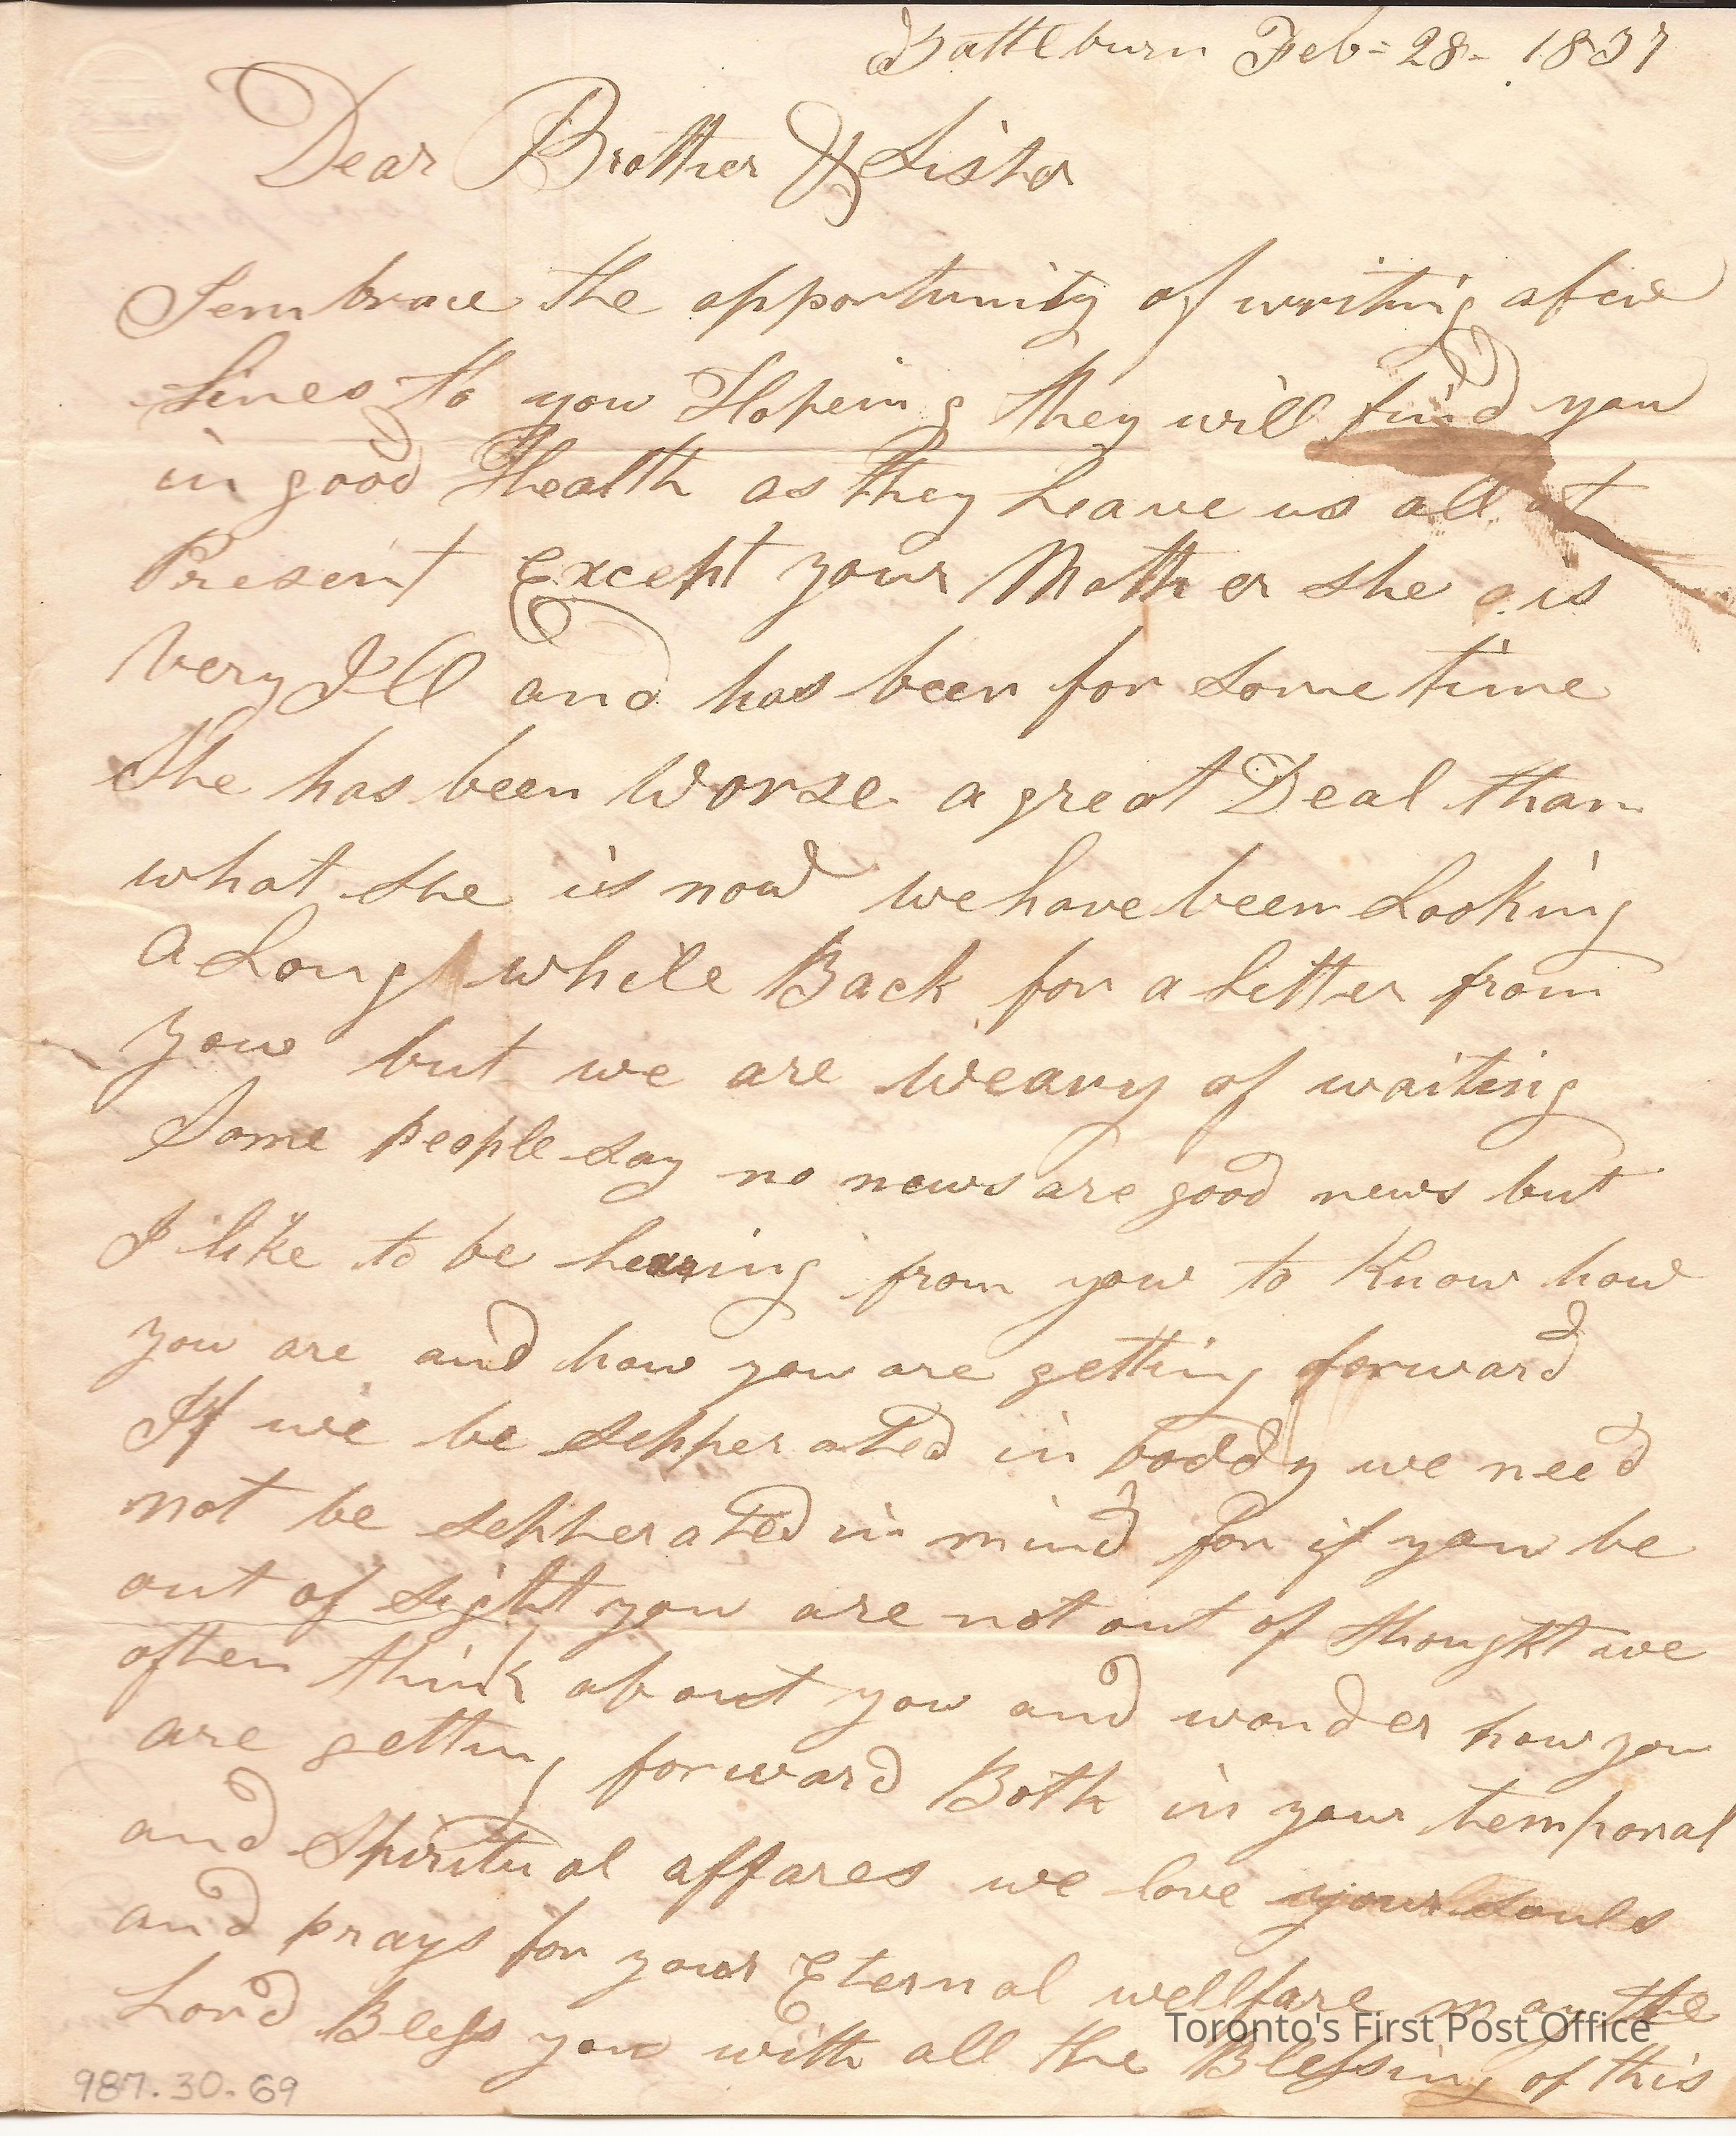 Battleburn Feb= 28- 1837
Dear Brother & Sister
I embrace the opportunity of writing a few
Lines to you Hopeing they will find you
in good Health as they Leave us all at
Present Except your Mother she is
Very Ill and has been for Some time
She has been Worse a great Deal than
what she is now we have been Looking
A Long while Back for a Letter from
you but we are Weary of waiting
Some people say no news are good news but
I like to be hearing from you to Know how
you are and how you are getting forward
If we be sepperated in boddy we need
not be sepperated in mind for if you be
out of sight you are not out of thought we
often think about you and wonder how you
are getting forward Both in your temporal
and Spiritual affares we love your souls
and prays for your Eternal wellfare may the
Lord Bless you with all the Blessing of this
Toronto's First Post Office
987.30.69